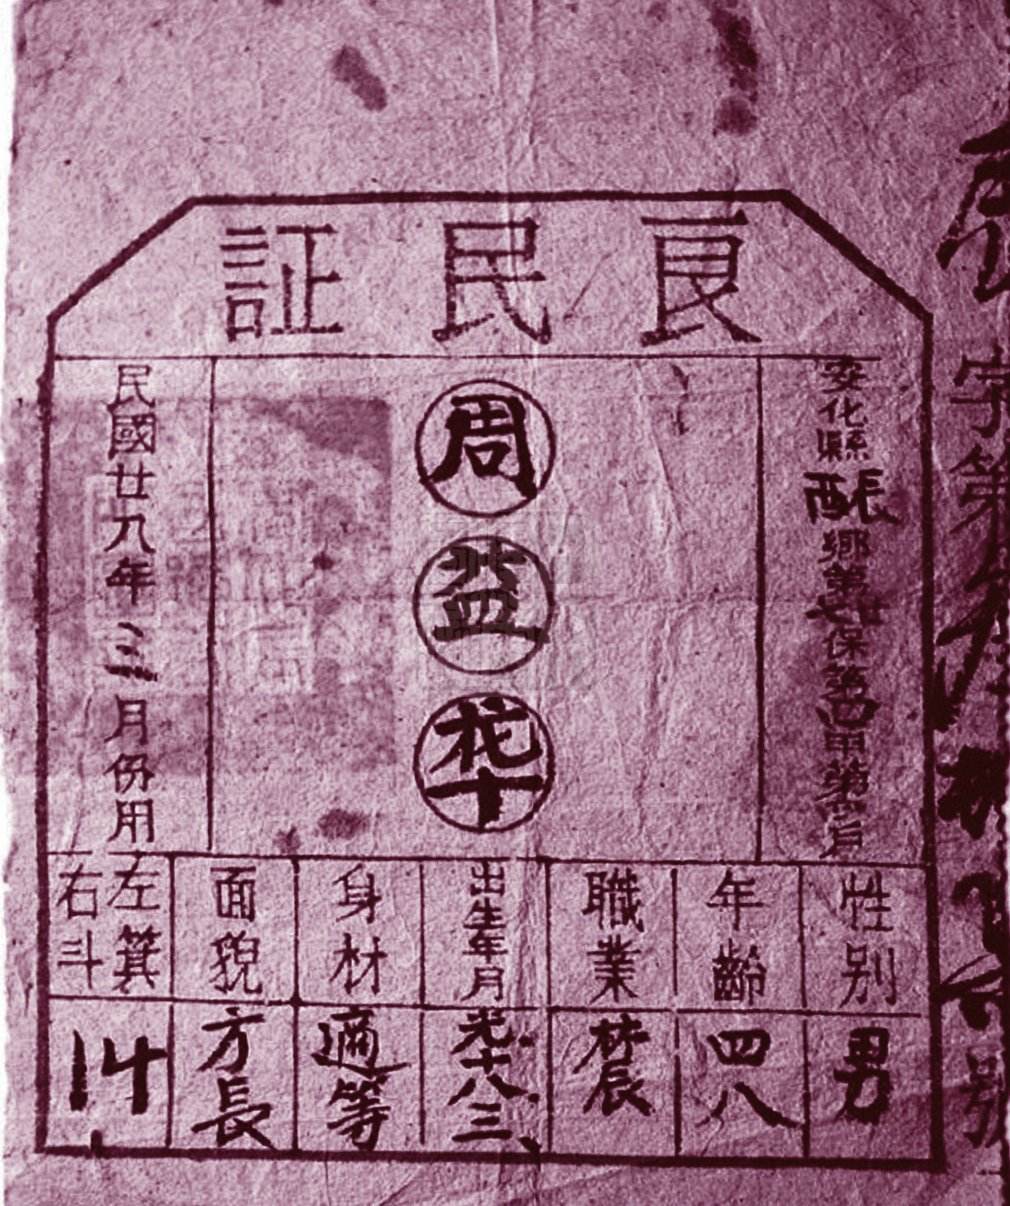 良民証
安化縣
鄉第廿七保第四甲第戶
周益花十
民國廿九年三月份用
性別
年齡
職業
出生年月
身材
面貌
左箕右斗
男
四八
光十八、三、
適等
方長
字第
號